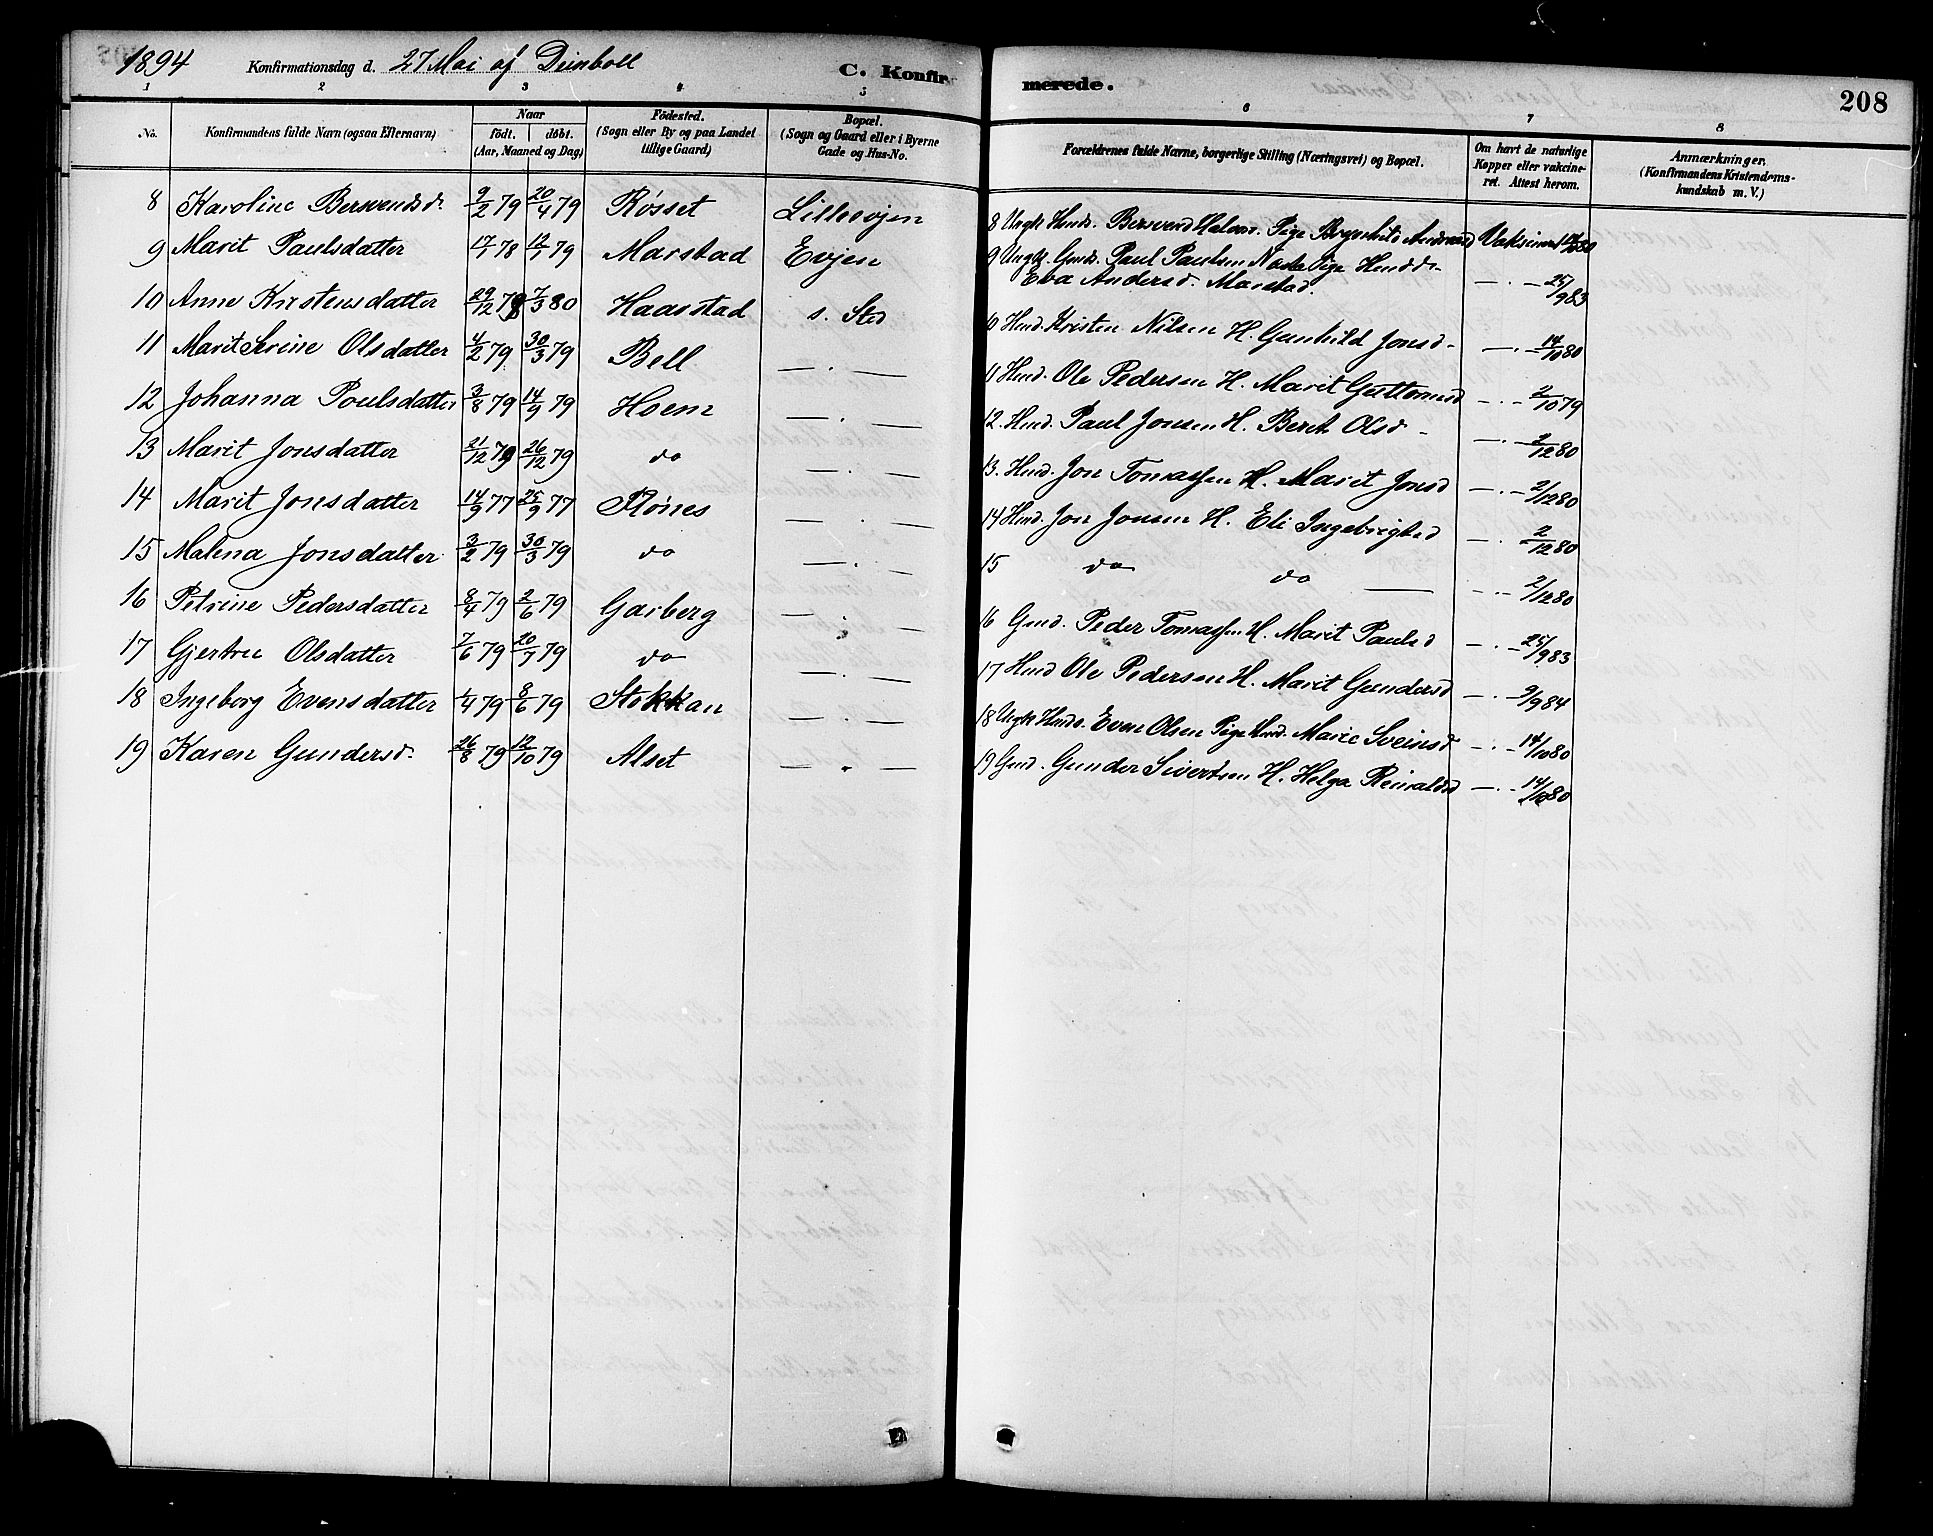 1894 Konfirmationsdag d. 27 Mai af Deinboll C. Konfir-
merede. 208
1 2 3 4 5
6 7 8
No. Konfirmandens fulde Navn (ogsaa Efternavn) Naar født. døbt. (Aar, Maaned og Dag) Fødested. (Sogn eller By og paa Landet tillige Gaard) Bopæl. (Sogn og Gaard eller i Byerne Gade og Hus-No.
Forældrenes fulde Navne, borgerlige Stilling (Næringsvei) og Bopæl. Om havt de naturlige Kopper eller vakcineret. Attest herom. Anmærkninger. (Konfirmandens Kristendomskundskab m. V.)
8 Karoline Bersvendsd. 9/2 79 20/4 79 Røsset Lilleevjen
9 Marit Paulsdatter 17/7 78 12/1 79 Marstad Evjen
10 Anne Kristensdatter 29/12 79 7/3 80 Haarstad s. Sted
11 Marit Serine Olsdatter 4/2 79 30/3 79 Bell — . —
12 Johanna Poulsdatter 3/8 79 14/9 79 Hoem — . —
13 Marit Jonsdatter 21/12 79 26/12 79 do — . —
14 Marit Jonsdatter 14/9 77 25/9 77 Rønes — . —
15 Malena Jonsdatter 3/2 79 30/3 79 do — . —
16 Petrine Pedersdatter 8/4 79 2/6 79 Garberg — . —
17 Gjertru Olsdatter 7/6 79 20/7 79 do — . —
18 Ingeborg Evensdatter 4/4 79 8/6 79 Stokkan — . —
19 Karen Gundersd. 26/8 79 12/10 79 Alset — . —
8 Ungk. Husds. Bersvend Halvor. Pige Vaksineret 80
9 Ungk. Gmds. Paul Paulsen Pige
Eva Andersd. Marstad. — . — 25/9 83
10 Husd. Kristen Nilsen H. Gunhild Jonsd. — . — 14/10 80
11 Husd. Ole Pedersen H. Marit Guttormsd — . — 2/10 79
12. Husd. Paul Jonsen H. Berit Olsd — . — 2/12 80
13. Husd. Jon Tomassen H. Marit Jonsd — . — 2/12 80
14 Husd. Jon Jonsen H. Eli Ingebrigtsd — . — 2/12 80
15 do do — — . — 2/12 80
16 Gmd. Peder Tomassen H. Marit Paulsd — . — 25/9 83
17 Husd Ole Pedersen H. Marit Gundersd — . — 9/9 84
18 Ungk Husds. Even Olsen Pige Husd. Marie Sveinsd — . — 14/10 80
19 Gmd. Gunder Sivertsen H. Helga Reinaldsd — . — 14/10 80